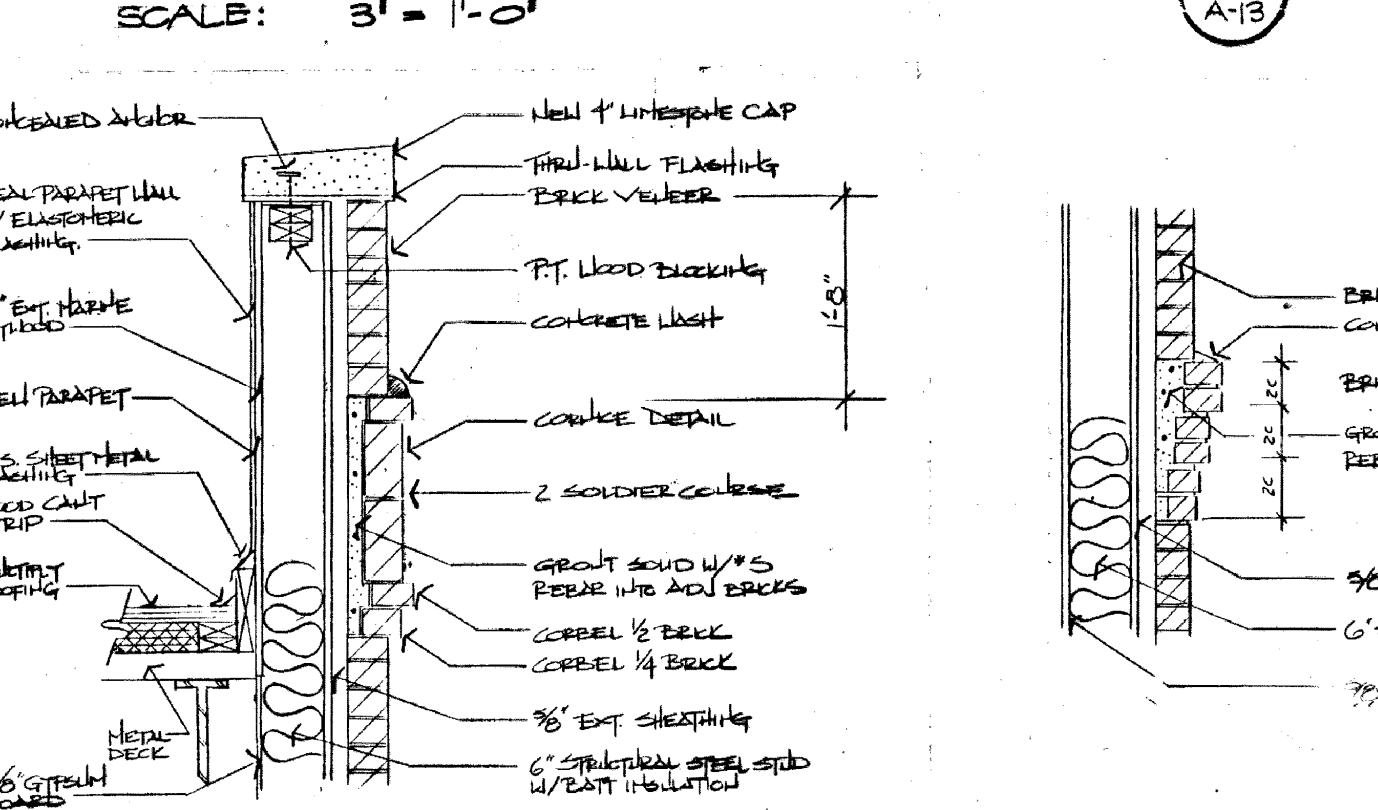 SCALE: 3" = 1'-0"
A-13
CONCEALED ANCHOR
SEAL PARAPET WALL
W/ ELASTOMERIC
FLASHING.
" EXT. MARINE
PLYWOOD
NEW PARAPET
S. SHEET METAL
FLASHING
WOOD CANT
STRIP
MULTIPLY
ROOFING
METAL
DECK
5/8" GYPSUM
BOARD
NEW 4" LIMESTONE CAP
THRU-WALL FLASHING
BRICK VENEER
P.T. WOOD BLOCKING
CONCRETE WASH
1'-8"
CORNICE DETAIL
2 SOLDIER COURSE
GROUT SOLID W/ #5
REBAR INTO ADJ BRICKS
CORBEL 1/2 BRICK
CORBEL 1/4 BRICK
5/8" EXT. SHEATHING
6" STRUCTURAL STEEL STUD
W/ BATT INSULATION
BRI
CO
BRI
2C
2C
2C
GRO
REB
5/8
6"